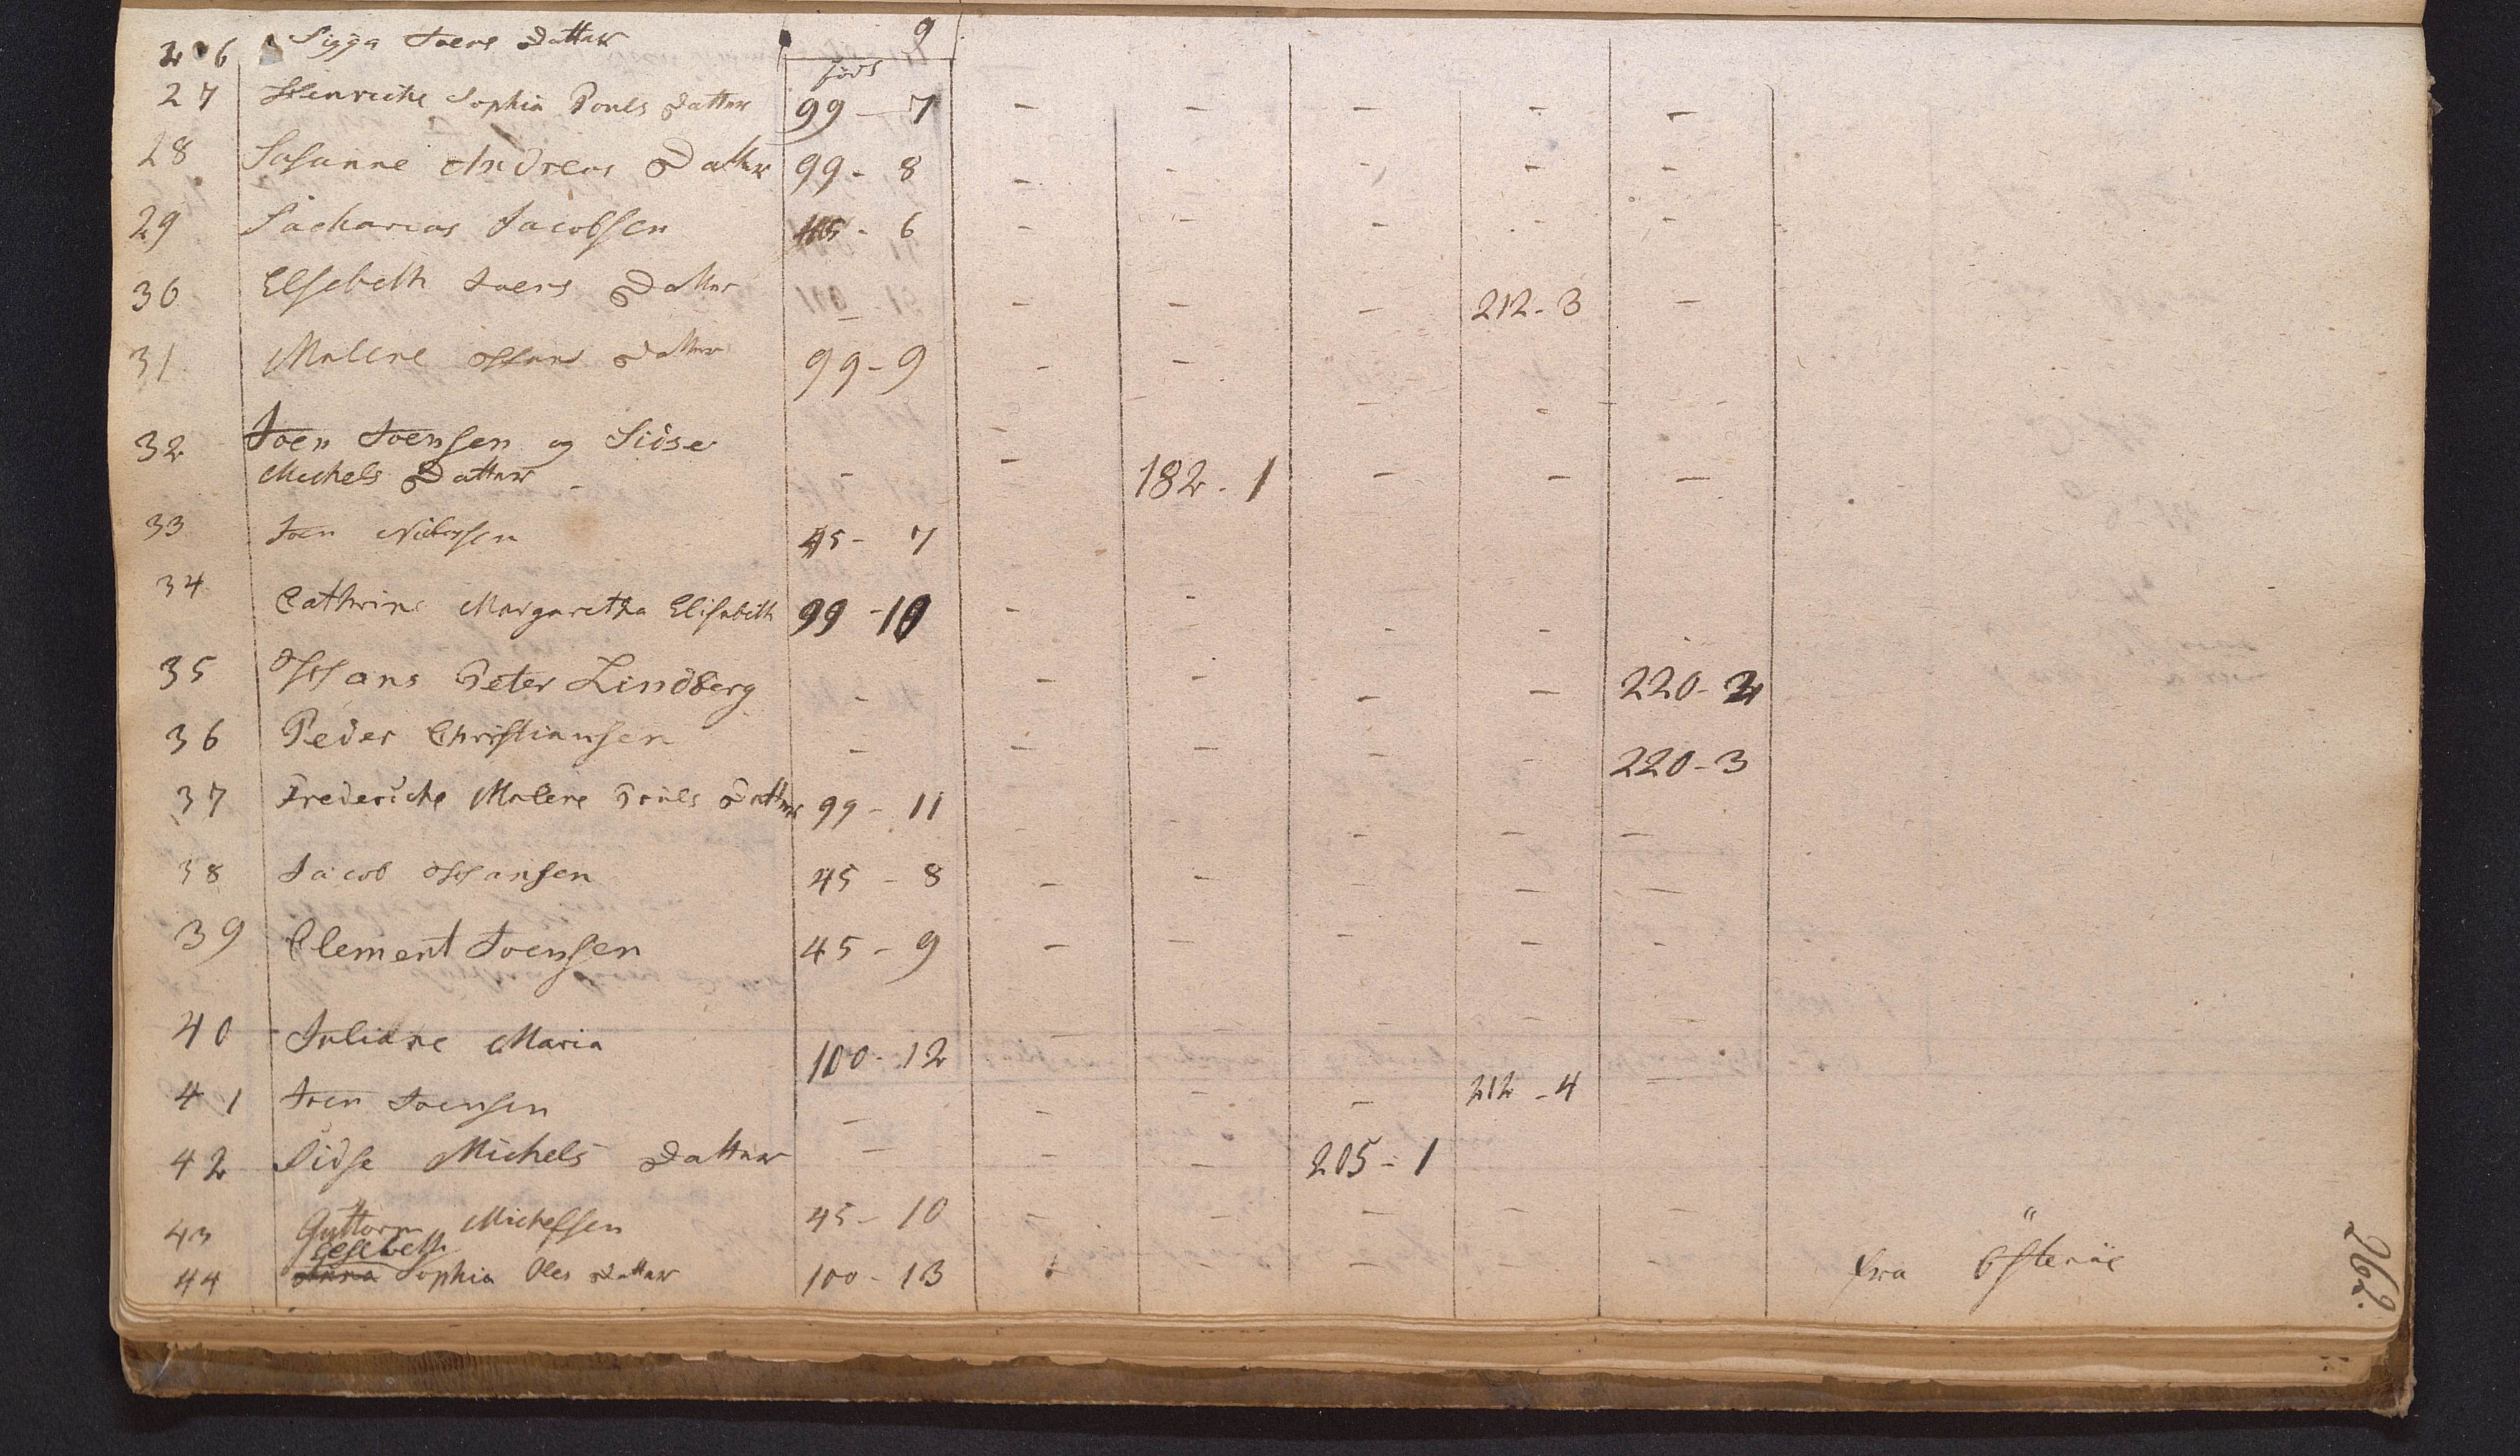 26 Sigga Joens Datter 9
föds
27 Henriche Sophia Pouls Datter 99 - 7 - - - - -
28 Susanne Andreas Datter 99 - 8 - - - - -
29 Sacharias Jacobsen 45 - 6 - - - - -
30 Elsebeth Joens Datter - - - - 212 - 3 -
31 Malene Hans Datter 99 - 9 - - - - -
32 Joen Joensen og Sidse
Michels Datter - - - 182 - 1 - - -
33 Joen 45 - 7
34 Cathrine Margaretha Elisabeth 99 - 10 - - - - -
35 Hans Peter Lindberg - - - - - 220 - 2
36 Peder Christiansen - - - - - 220 - 3
37 Frederiche Malene Pouls Datter 99 - 11 - - - - -
38 Jacob Hansen 45 - 8 - - - - -
39 Clement Joensen 45 - 9 - - - - -
40 Juliane Maria 100 - 12 - - - - -
41 Joen Joensen - - - - 212 - 4 -
42 Sidse Michels Datter - - - 205 - 1
43 Guttorm Michelsen 45 - 10 - - - - - "
Elsebeth
44 Anna Sophia Oles Datter 100 - 13 - - - - - fra Österöe
262.